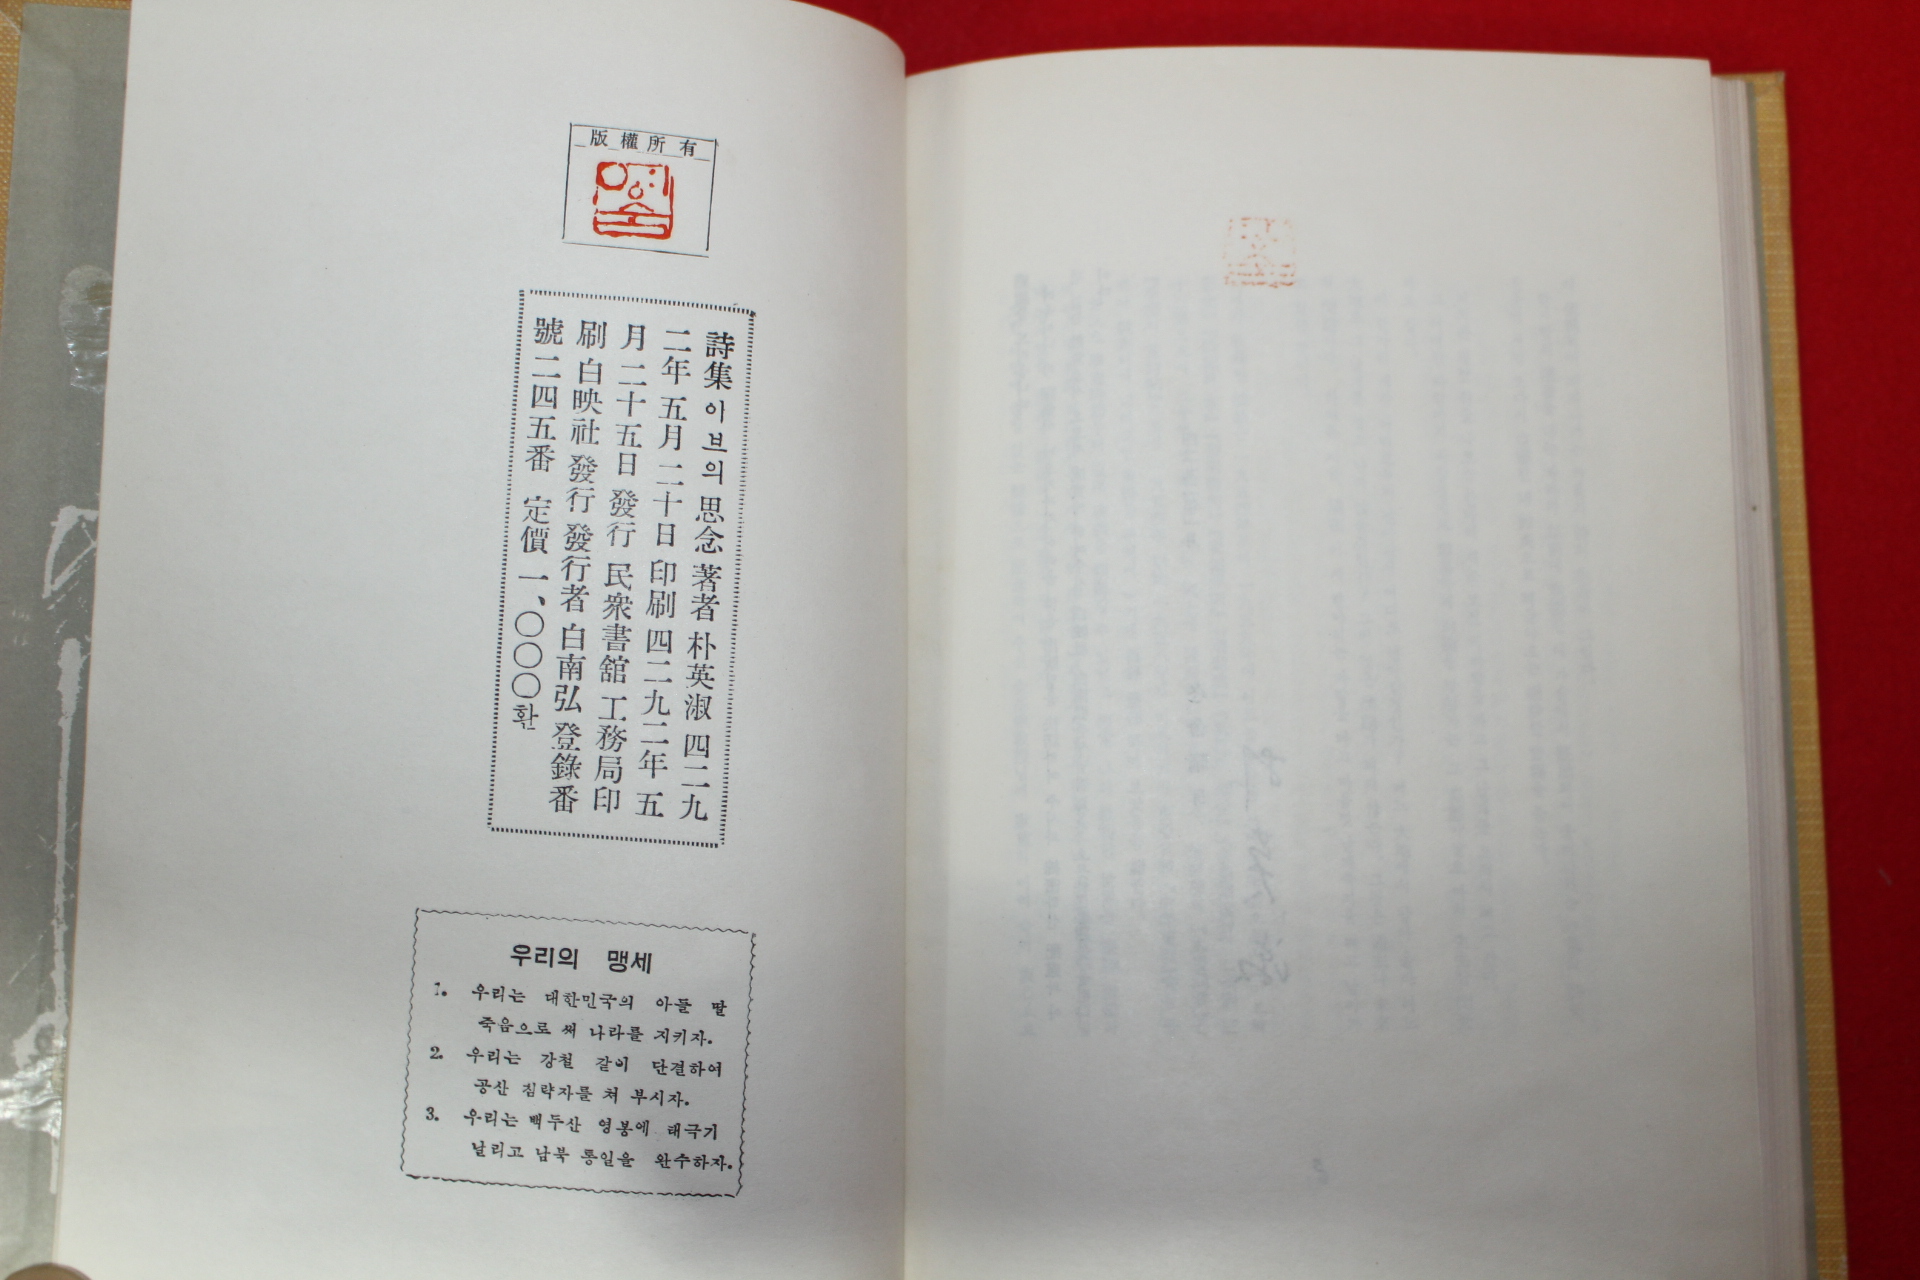 版權所有
詩集 아브의 思念 著者 朴英淑 四二九
二年 五月 二十日 印刷 四二九二年 五
月 二十五日 發行 民衆書舘 工務局 印
刷 白映社 發行 發行者 白南弘 登錄番
號 二四五番 定價 一、〇〇〇환
우리의 맹세
1. 우리는 대한민국의 아들 딸
죽음으로 써 나라를 지키자.
2. 우리는 강철 같이 단결하여
공산 침략자를 쳐 부시자.
3. 우리는 백두산 영봉에 태극기
날리고 남북 통일을 완수하자.